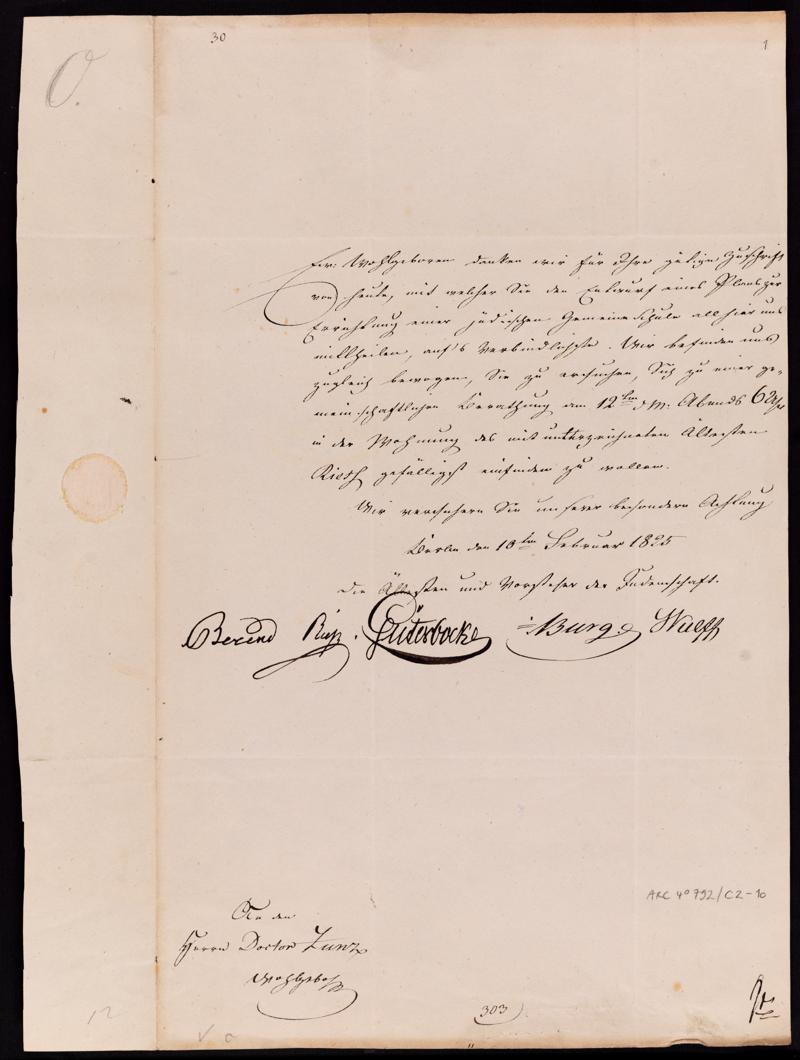 30
1
O.
Ew: Wohlgeboren danken wir für Ihre gütige Zuschrift
von heute, mit welcher Sie den Entwurf eines Plans zur
Errichtung einer jüdischen Gemeine Schule allhier uns
mittheilen, auf's Verbindlichste. Wir befinden uns
zugleich bewogen, Sie zu ersuchen, Sich zu einer ge-
meinschaftlichen Berathung am 12ten d. M. Abends 6 Uhr
in der Wohnung des mitunterzeichneten Ältesten
Riess gefälligst einfinden zu wollen.
Wir versichern Sie unserer besondern Achtung
Berlin den 10ten Februar 1825
Die Ältesten und Vorsteher der Judenschaft.
Berend Riess. Güterbock Burg Wulff
ARC 4° 792/C2-10
An den
Herrn Doctor Zunz
Wohlgeb.
303
12